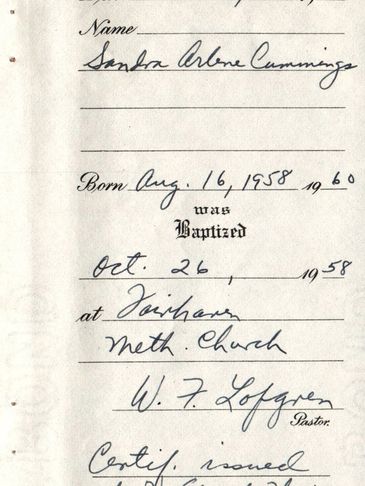 Name
Sandra Arlene Cummings
Born Aug. 16, 1958 1960
was
Baptized
Oct. 26, 1958
at Fairhaven
Meth. Church
W. F. Lofgren
Pastor.
Certif. issued